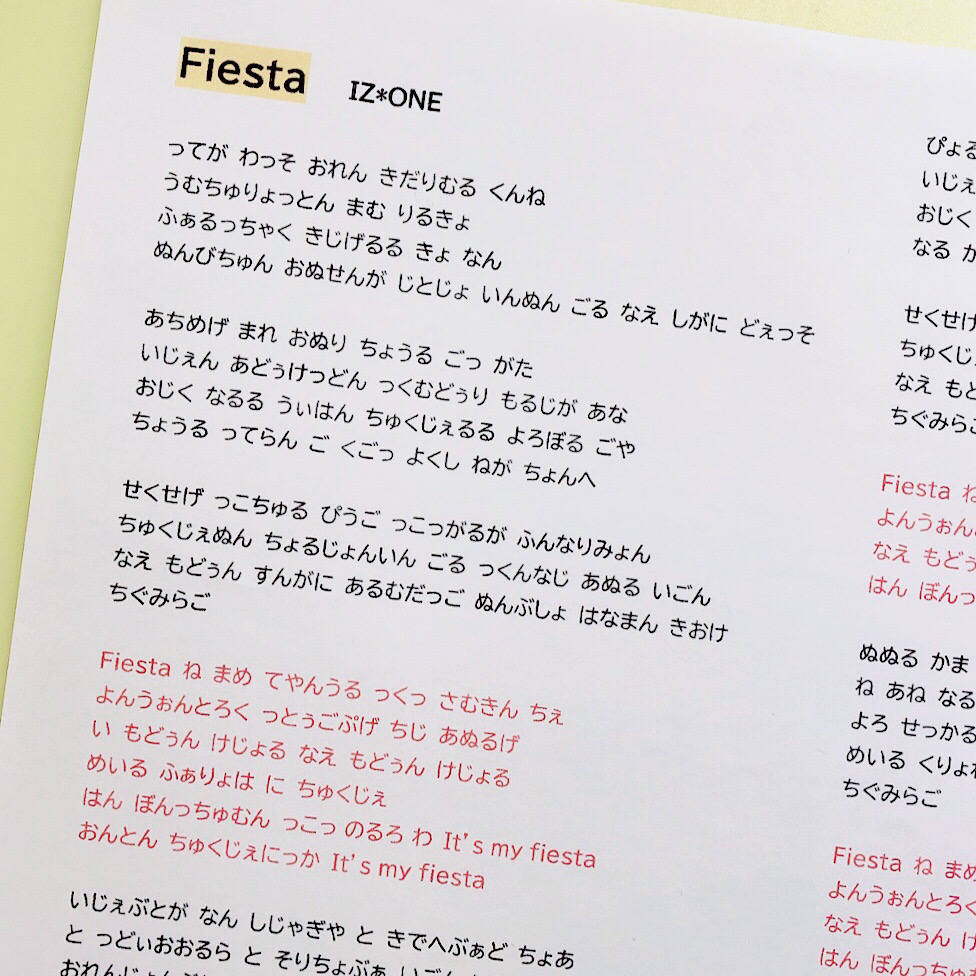 Fiesta IZ*ONE
ってが わっそ おれん きだりむる くんね
うむちゅりょっとん まむ りるきょ
ふぁるっちゃく きじげるる きょ なん
ぬんびちゅん おぬせんが じとじょ いんぬん ごる なえ しがに どぇっそ
あちめげ まれ おぬり ちょうる ごっ がた
いじぇん あどぅけっどん っくむどぅり もるじが あな
おじく なるる うぃはん ちゅくじぇるる よろぼる ごや
ちょうる ってらん ご くごっ よくし ねが ちょんへ
せくせげ っこちゅる ぴうご っこっがるが ふんなりみょん
ちゅくじぇぬん ちょるじょんいん ごる っくんなじ あぬる いごん
なえ もどぅん すんがに あるむだっご ぬんぶしょ はなまん きおけ
ちぐみらご
Fiesta ね まめ てやんうる っくっ さむきん ちぇ
よんうぉんとろく っとぅごぷげ ちじ あぬるげ
い もどぅん けじょる なえ もどぅん けじょる
めいる ふぁりょは に ちゅくじぇ
はん ぼんっちゅむん っこっ のるろ わ It's my fiesta
おんとん ちゅくじぇにっか It's my fiesta
いじぇぶとが なん しじゃぎや と きでへぶぁど ちょあ
と っどぃおおるら と そりちょぶぁ いごん
おれんじょん
ぴょる
いじぇ
おじく
なる
せくせげ
ちゅくじ
なえ もど
ちぐみらご
Fiesta ね
よんうぉん
なえ もどぅ
はん ぼんっ
ぬぬる かま
ね あね なる
よろ せっかる
めいる くりょ
ちぐみらご
Fiesta ね まめ
よんうぉんとろく
なえ もどぅん け
はん ぼんっちゅ